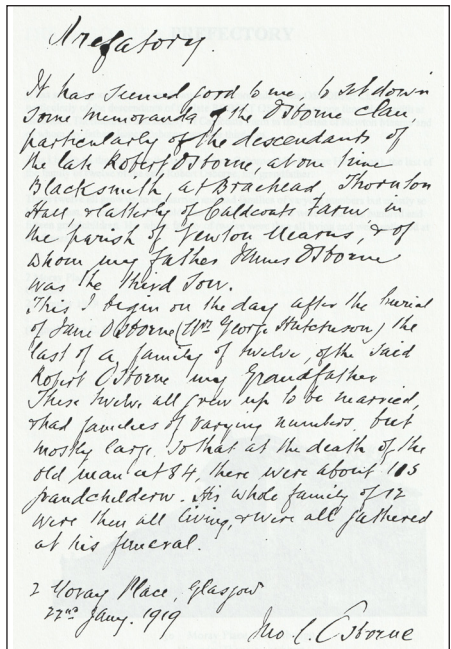 Prefatory.
It has seemed good to me, to set down
some memoranda of the Osborne clan,
particularly of the descendants of
the late Robert Osborne, at one time
Blacksmith, at Braehead, Thornton
Hall, & latterly of Caldcoats Farm in
the parish of Newton Mearns, & of
whom my father James Osborne
was the third son.
This I begin on the day after the burial
of Jane Osborne (Mrs George Hutcheson) the
last of a family of twelve, of the said
Robert Osborne my Grandfather
These twelve all grew up to be married,
& had families of varying numbers, but
mostly large. So that at the death of the
old man at 84, there were about 105
grandchildern. His whole family of 12
were then all living, & were all gathered
at his funeral.
2 Place, Glasgow
22nd Jany. 1919
Jno. C. Osborne